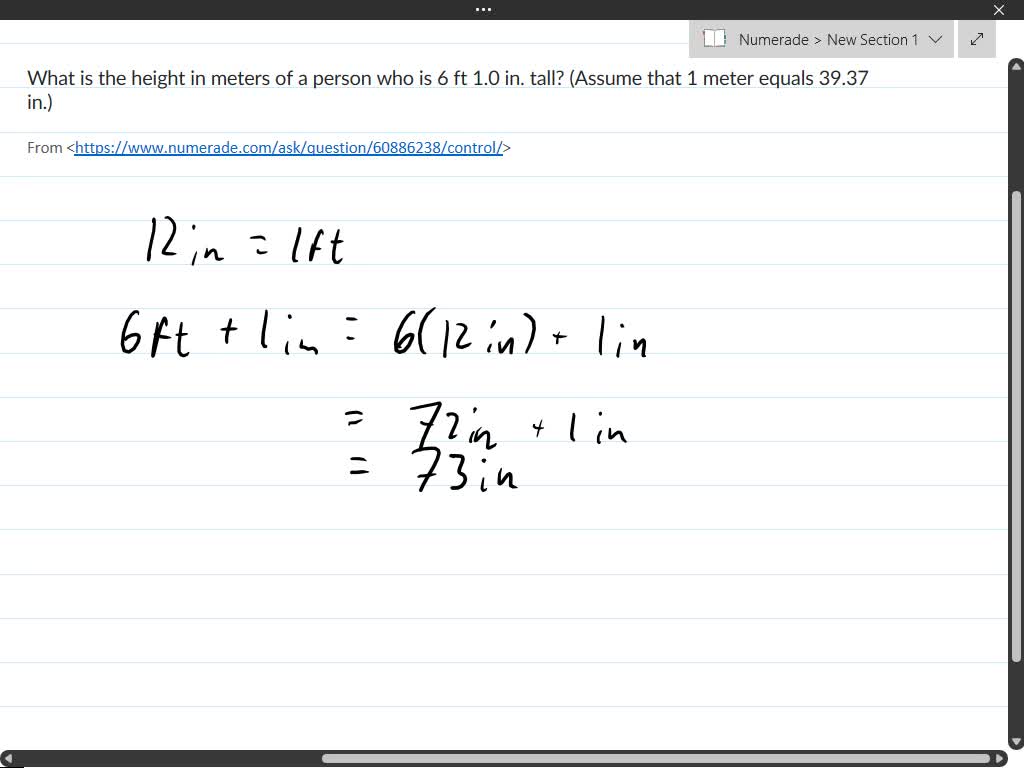 Numerade > New Section 1
What is the height in meters of a person who is 6 ft 1.0 in. tall? (Assume that 1 meter equals 39.37
in.)
From <https://www.numerade.com/ask/question/60886238/control/>
12 in = 1ft
6ft + 1 in = 6(12 in) + 1 in
= 72in + 1 in
= 73in